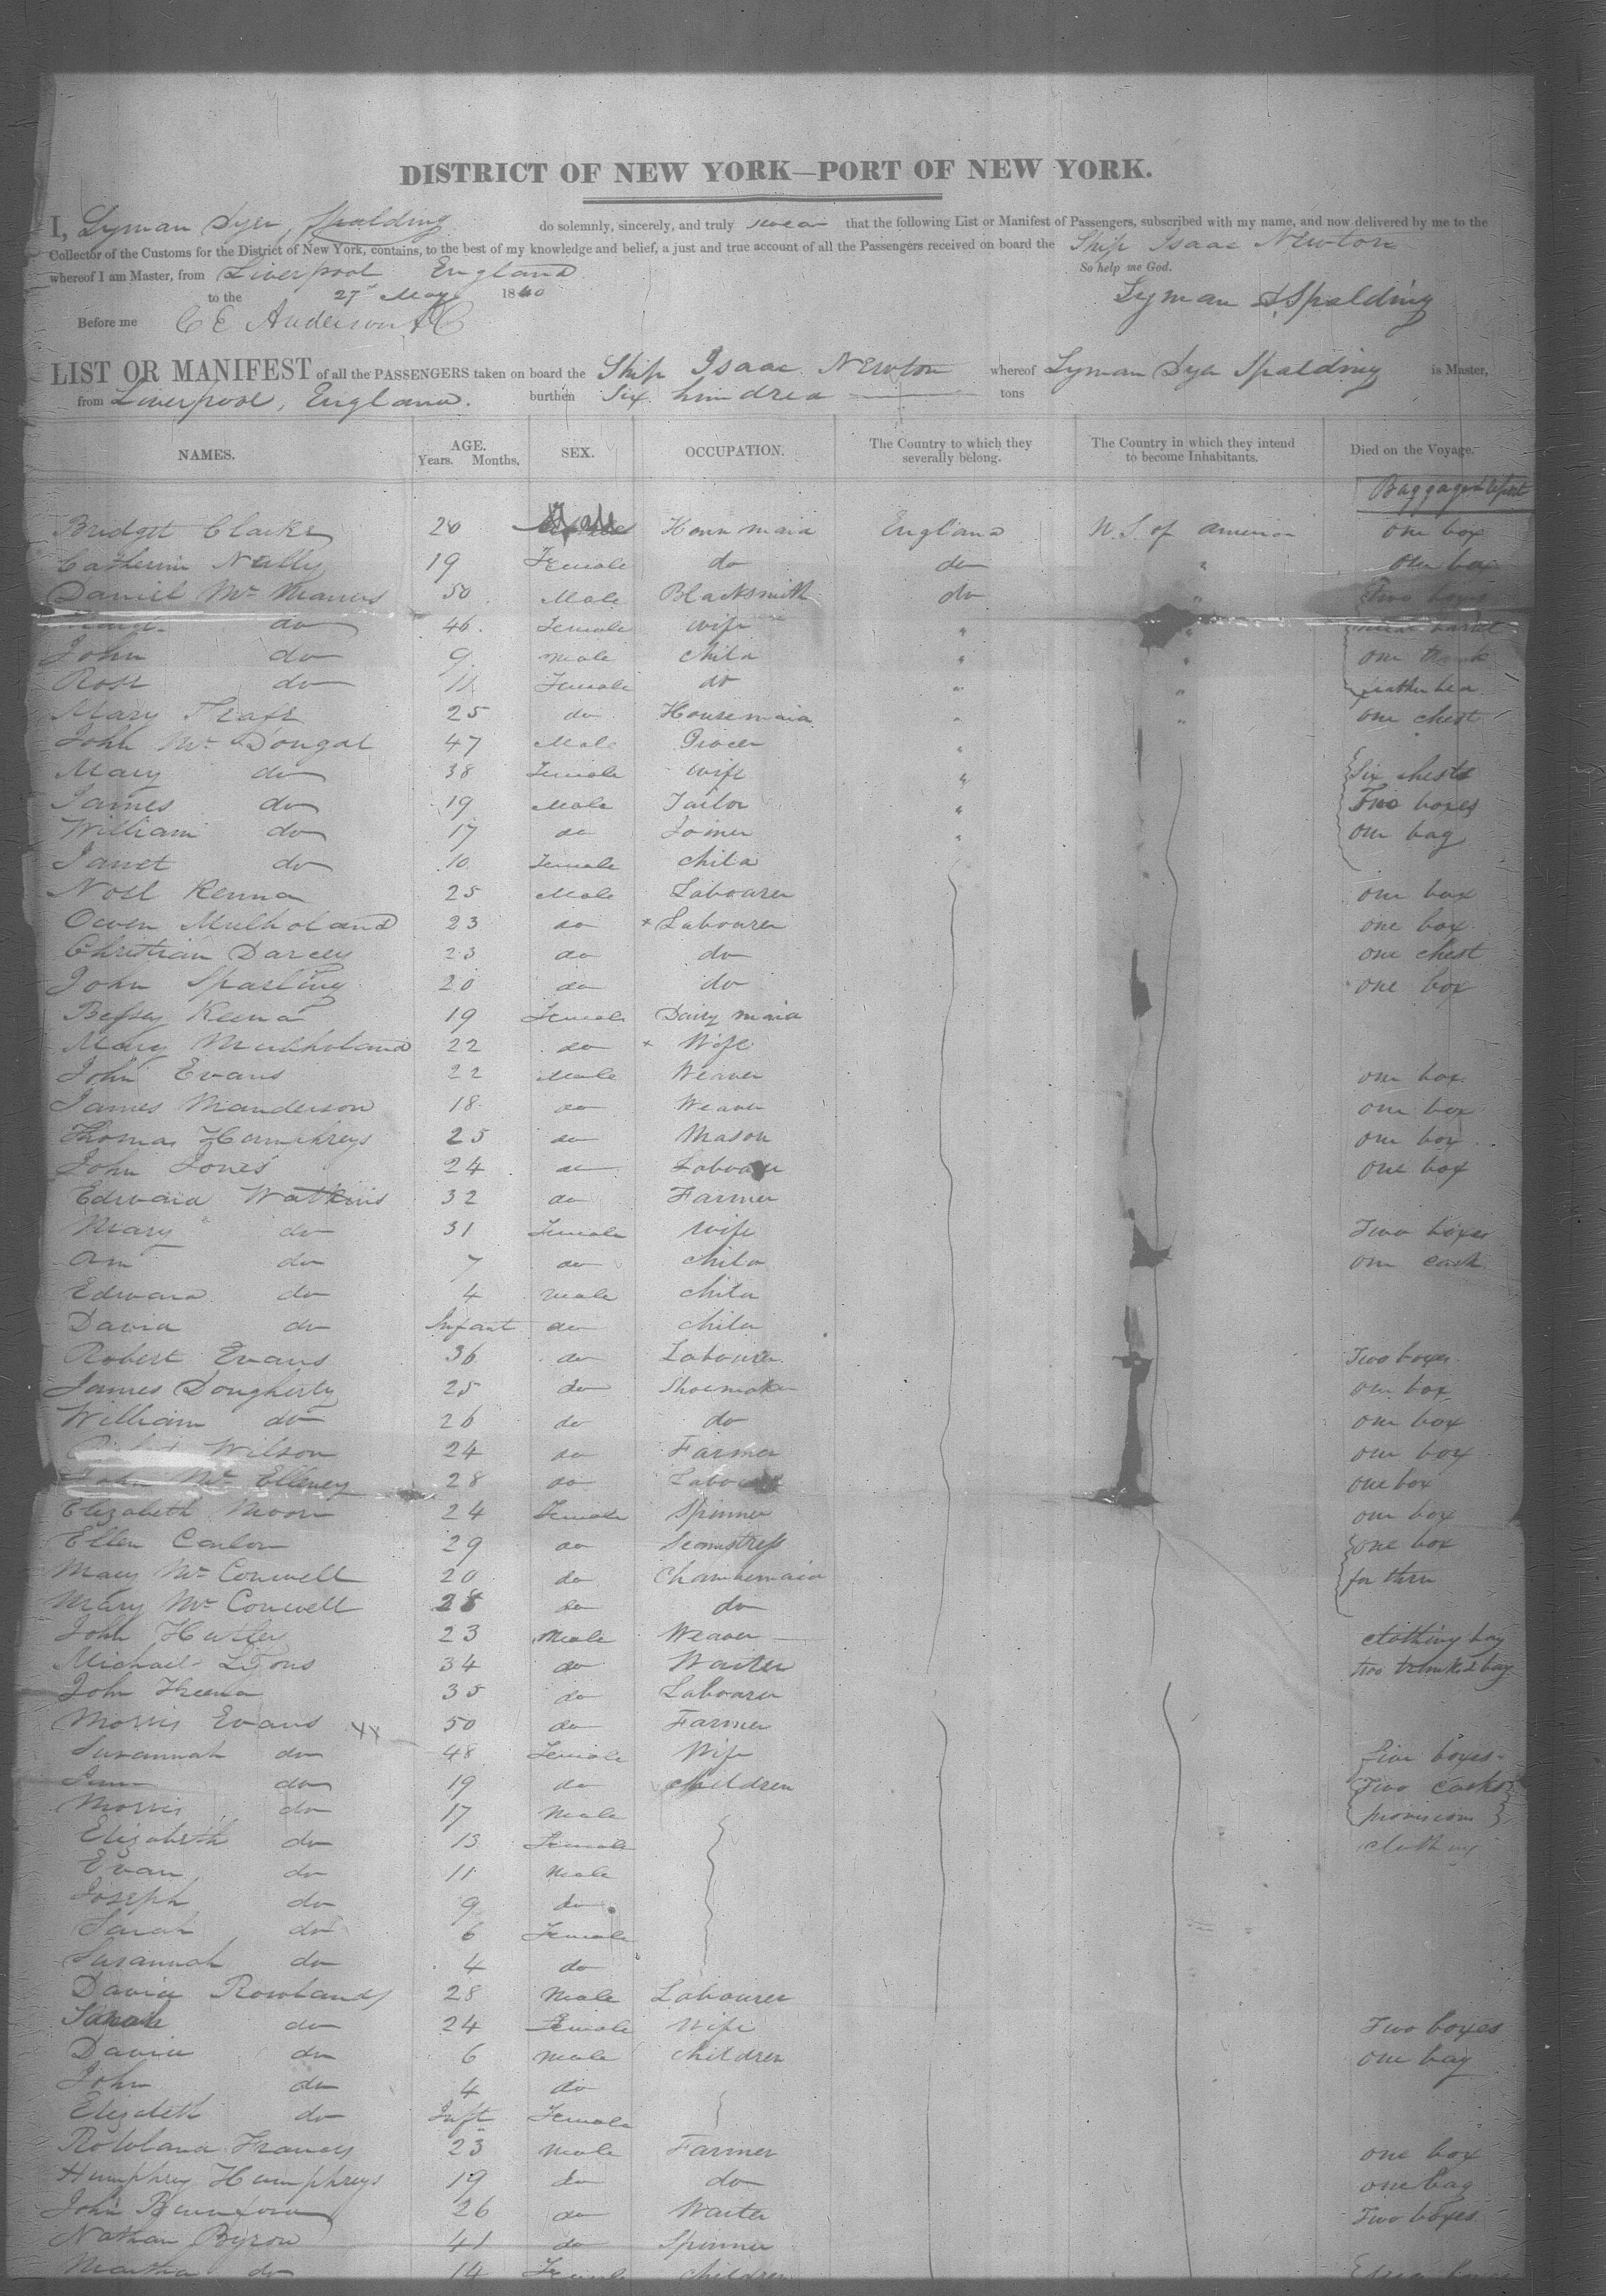 DISTRICT OF NEW YORK—PORT OF NEW YORK.
I, Lyman Dyer Spalding do solemnly, sincerely, and truly swear that the following List or Manifest of Passengers, subscribed with my name, and now delivered by me to the
Collector of the Customs for the District of New York, contains, to the best of my knowledge and belief, a just and true account of all the Passengers received on board the Ship Isaac Newton
whereof I am Master, from Liverpool England So help me God.
to the 27th May 1840 Lyman D. Spalding
Before me C E Anderson
LIST OR MANIFEST of all the PASSENGERS taken on board the Ship Isaac Newton whereof Lyman Dyer Spalding is Master,
from Liverpool, England. burthen Six hundred tons
NAMES. AGE. Years. Months. SEX. OCCUPATION. The Country to which they severally belong. The Country in which they intend to become Inhabitants. Died on the Voyage.
Baggage
Bridget Clarke 20 House maid England U.S. of America one box
Catherine Nally 19 Female do do " one box
Daniel Mc Manus 50 Male Blacksmith do " Two boxes
do 46 Female wife " "
John do 9 Male child " " one trunk
Rose do 11 Female do " " feather bed
Mary 25 do Housemaid " " one chest
John Mc Dougal 47 Male Grocer "
Mary do 38 Female wife " Six chests
James do 19 Male Tailor " Two boxes
William do 17 do Joiner " one bag
Janet do 10 Female child
Noel Kenna 25 Male Labourer one box
Owen Mulholand 23 do + Labourer one box
Christian Darcey 23 do do one chest
John Sparling 20 do do one box
Bessey Keena 19 Female Dairy maid
Mary Mulholand 22 do + Wife
John Evans 22 Male Weaver one box
James Manderson 18 do Weaver one box
Thomas Humphreys 25 do Mason one box
John Jones 24 do Labourer one box
Edward Watkins 32 do Farmer
Mary do 31 Female wife Two boxes
Ann do 7 do child one cask
Edward do 4 male child
David do Infant do child
Robert Evans 36 do Labourer Two boxes
James Dougherty 25 do Shoemaker one box
William do 26 do do one box
Wilson 24 do Farmer one box
John Mc Elleney 28 do Labourer one box
Elizabeth Moore 24 Female Spinner one box
Ellen Conlon 29 do Seamstress one box
Mary Mc Conwell 20 do Chambermaid for three
Mary Mc Conwell 28 do do
John 23 Male Weaver clothing bag
Michael Lyons 34 do Waiter two trunks & bag
John Keena 35 do Labourer
Morris Evans XX 50 do Farmer
Susannah do 48 Female Wife five boxes
do 19 do children Two casks
Morris do 17 Male provisions
Elizabeth do 13 Female clothing
Evan do 11 Male
Joseph do 9 do
Sarah do 6 Female
Susannah do 4 do
David Rowlands 28 Male Labourer
Sarah do 24 Female Wife Two boxes
David do 6 Male children one bag
John do 4 do
Elizabeth do Inft Female
Rowland Francis 23 Male Farmer one box
Humphrey Humphreys 19 do do one bag
John 26 do Waiter Two boxes
Nathan Byrow 41 do Spinner
Martha do 14 Female children